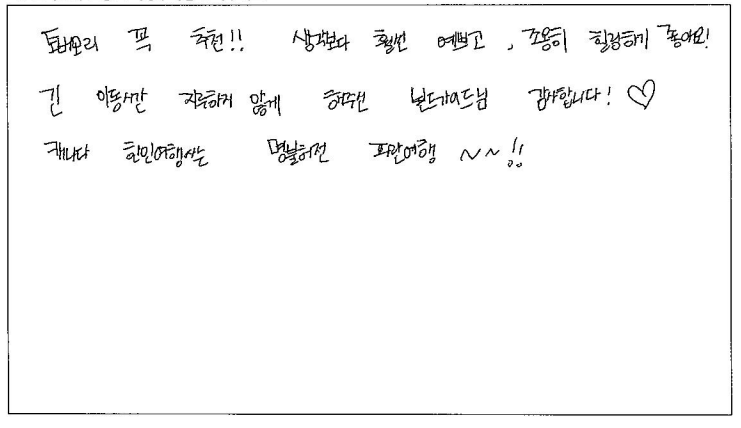 토버모리 꼭 추천!! 생각보다 훨씬 예쁘고, 조용히 힐링하기 좋아요!
긴 이동시간 지루하지 않게 해주신 가이드님 감사합니다! ♡
캐나다 한인여행사는 명불허전 파란여행 ~~!!